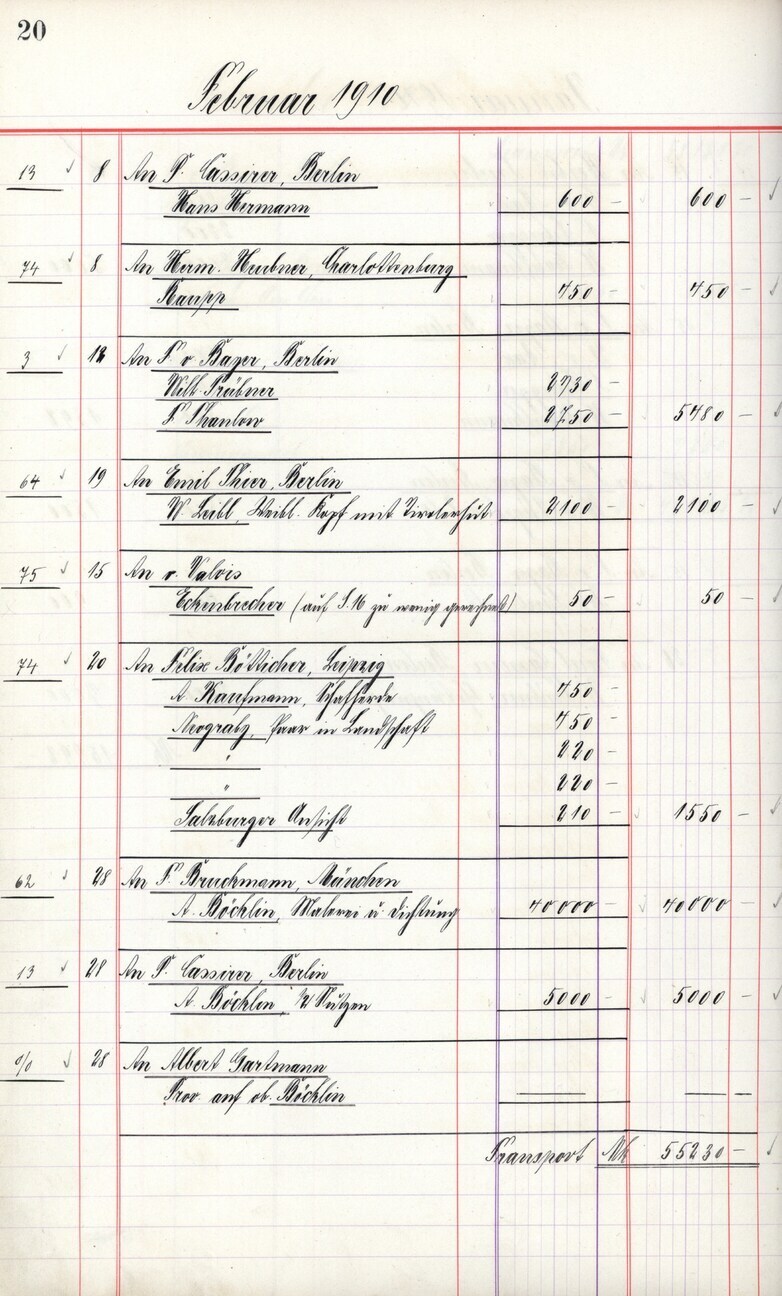 20
Februar 1910
13 8 An P. Cassirer, Berlin
Hans Hermann 600 – 600 –
74 8 An Herm. Heubner, Charlottenburg
Kaupp 450 – 450 –
3 12 An F. v Bayer, Berlin
Wilh. Trübner 2730 –
F. Thaulow 2750 – 5480 –
64 19 An Emil Thier, Berlin
W Leibl, Weibl. Kopf mit Tirolerhut 2100 – 2100 –
75 15 An v. Valois
Eckenbrecher (auf S. 16 zu wenig gerechnet) 50 – 50 –
74 20 An Felix Bötticher, Leipzig
A Kaufmann, Schafherde 450 –
Neogrady, Paar in Landschaft 450 –
" 220 –
" 220 –
Salzburger Ansicht 210 – 1550 –
62 28 An F. Bruckmann, München
A. Böcklin, Malerei u. Dichtung 40000 – 40000 –
13 28 An P. Cassirer, Berlin
A. Böcklin 5000 – 5000 –
0/0 28 An Albert Gartmann
Prov. auf ob. Böcklin — — —
Transport Mk 55230 –